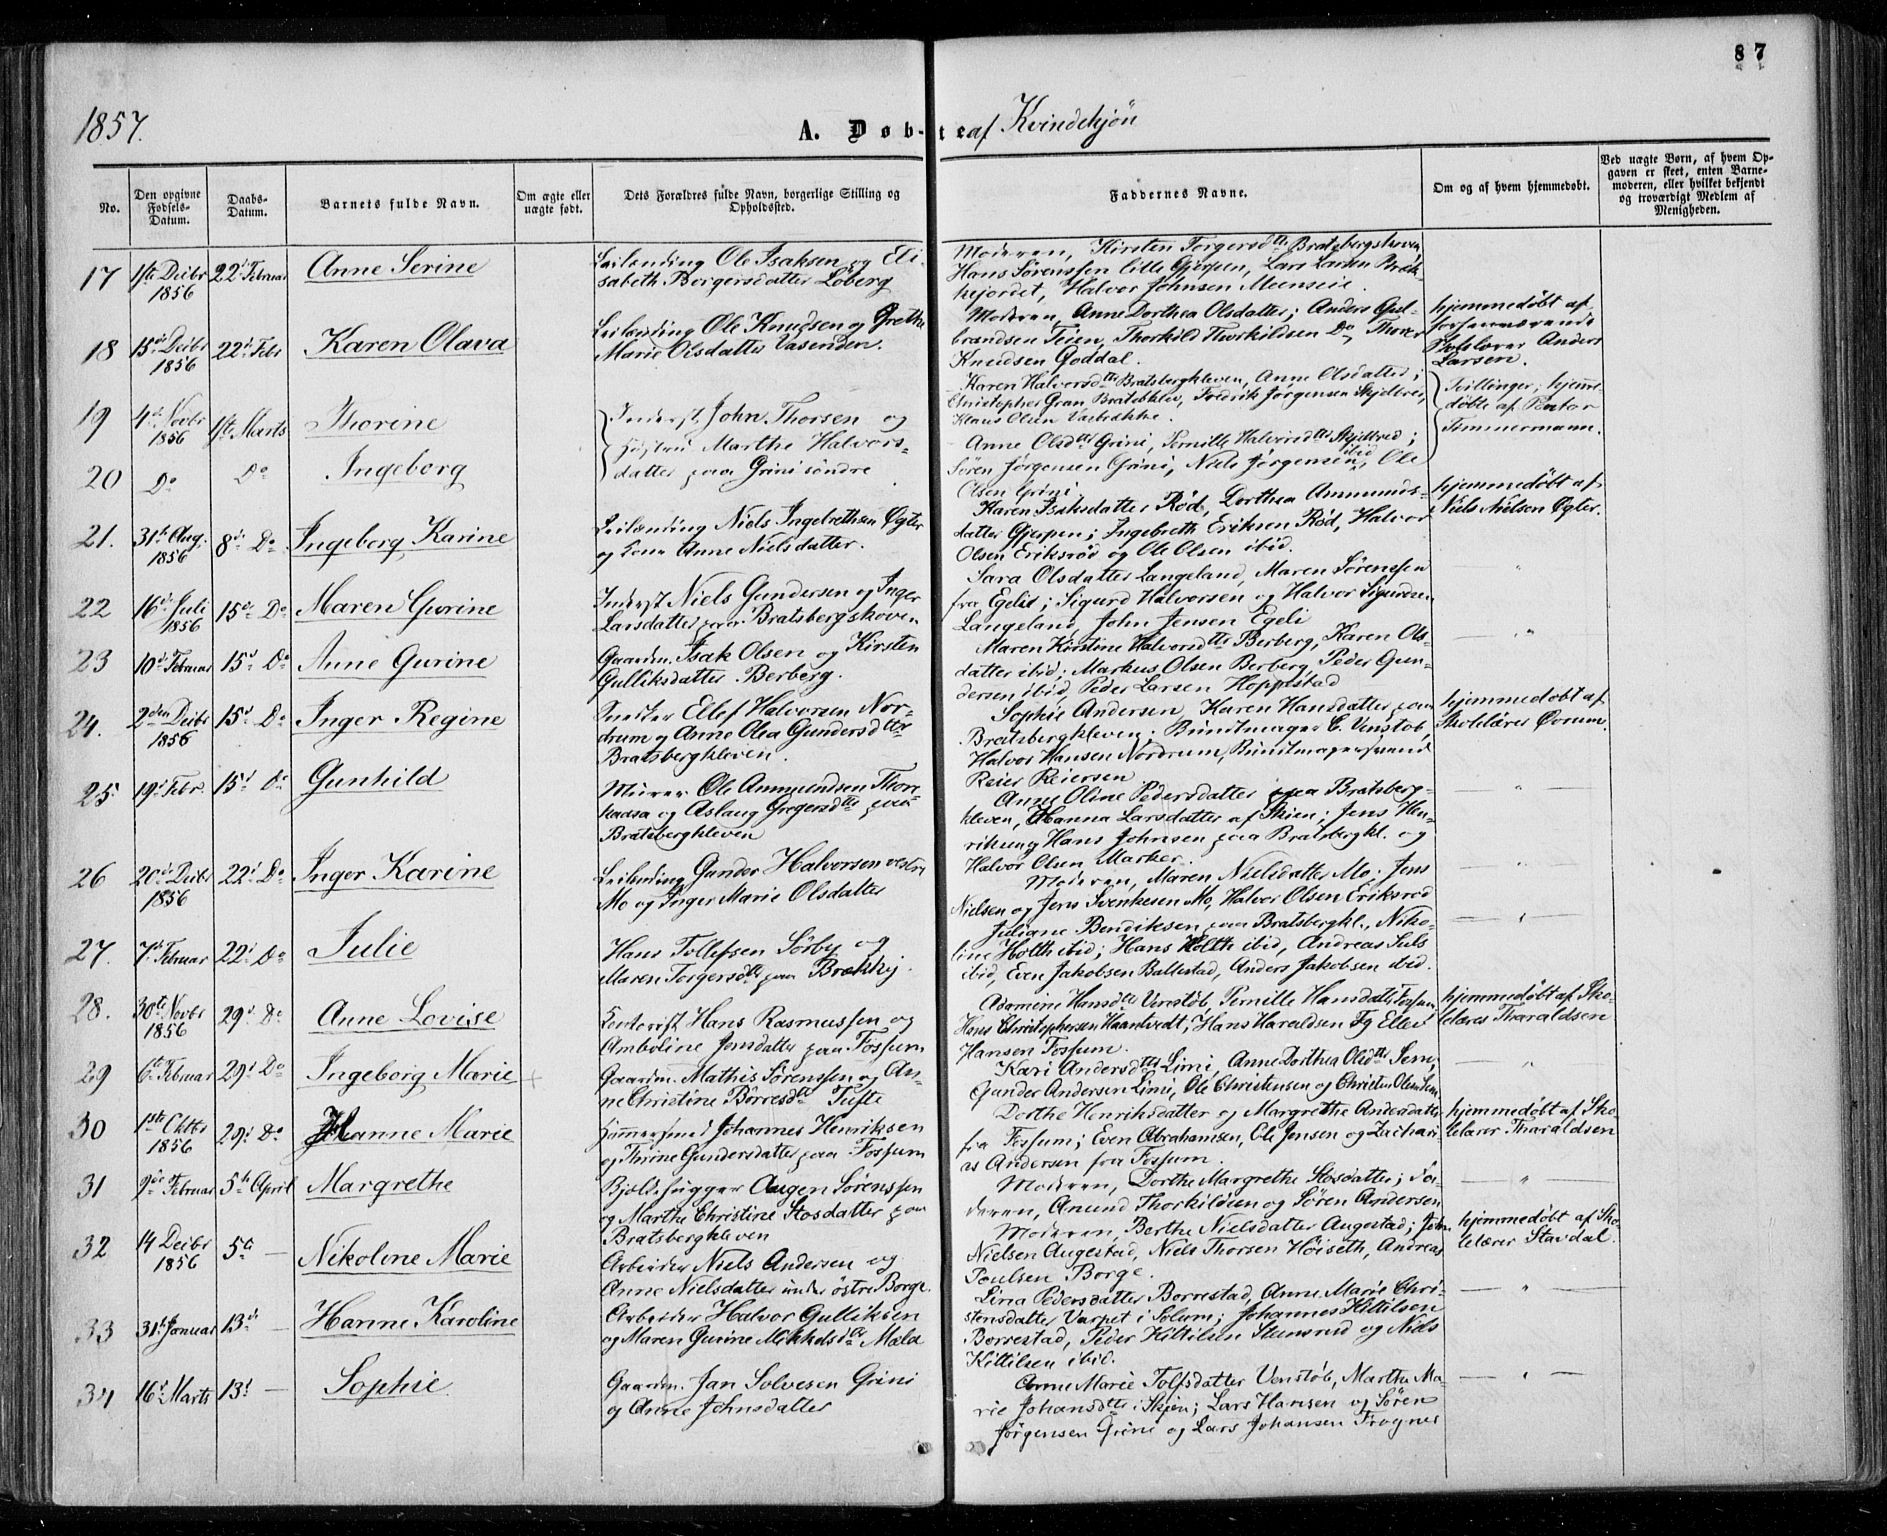 87
1857.
A. Døbte af Kvindekjön
No.
Den opgivne Fødsels-Datum.
Daabs-Datum.
Barnets fulde Navn.
Om ægte eller uægte født.
Dets Forældres fulde Navn, borgerlige Stilling og Opholdssted.
Faddernes Navne.
Om og af hvem hjemmedøbt.
Ved uægte Børn, af hvem Opgaven er skeet, enten Barnemoderen, eller hvilket bekjendt og troværdigt Medlem af Menigheden.
17 1ste Decbr 1856 22d Februar Anne Serine
Leilending Ole Isaksen og Eli-
sabeth Borgersdatter Löberg
Moderen, Kirsten Torgersdtt Bratsbergskoven
Hans Sörenssen lille Gjerpen, Lars Larsen Bræk-
kejordet, Halvor Johnsen Meenseie.
18 15d Decbr 1856 22d Febr Karen Olava
Leilending Ole Knudsen og Grethe
Marie Olsdatter Vasenden.
Moderen, Anne Dorthea Olsdatter; Anders Gul-
brandsen Teien, Thorkild Thorkildsen Do, Thorer
Knudsen Goddal.
hjemmedøbt af
forhenværende
Skolelærer Anders
Larsen.
19 4d Novbr 1856 1ste Marts Thorine
Inderst John Thorsen og
Hustru Marthe Halvors-
datter paa Grini söndre
Karen Halvorsdtt Bratsbergkleven, Anne Olsdatter;
Christopher Gran Bratsbklev, Fredrik Jörgensen Skjelbred,
Klaus Olsen Vasbrække.
Tvillinger, hjemme-
døbte af Pastor
Timmermann.
20 Do Do Ingeborg
Anne Olsdtt Grini, Pernille Halvorsdtt Skjelbred;
Sören Jörgensen Grini, Niels Jörgensen ibid, Ole
Olsen Grini
21. 31te Aug. 1856 8de Do Ingeborg Karine
Leilending Niels Ingebrethsen Ögter
og Kone Anne Nielsdatter.
Karen Isaksdatter Röd, Dorthea Ammunds-
datter Gjerpen; Ingebreth Eriksen Röd, Halvor
Olsen Eriksröd og Ole Olsen ibid.
hjemmedøbt af
Niels Nielsen Ögter.
22 16d Juli 1856 15de Do Maren Gurine
Inderst Niels Gundersen og Inger
Larsdatter paa Bratsbergskoven
Sara Olsdatter Langeland, Maren Sörenssen
fra Egeli; Sigurd Halvorsen og Halvor Sigurdsen
Langeland, John Jensen Egeli
23 10d Februar 15d Do Anne Gurine
Gaardm. Isak Olsen og Kirsten
Gulliksdatter Berberg.
Maren Kirstine Halvorsdtt Berberg, Karen Ols-
datter ibid; Markus Olsen Berberg, Peder Gun-
dersen ibid, Peder Larsen Hoppestad
24. 2den Decbr 1856 15d Do Inger Regine
Smeder Ellef Halvorsen Nor-
drum og Anne Olea Gundersdtter
Bratsbergkleven.
Sophie Andersen, Karen Hansdatter paa
Bratsbergkleven; Bundtmager C. Venstöb,
Halvor Hansen Nordrum, Bundtmagersvend
Reier Reiersen
hjemmedøbt af
Skolelærer Övrum.
25 19d Febr. 15d Do Gunhild
Murer Ole Ammundsen Thor-
kaasa og Aslaug Gregersdtt paa
Bratsbergkleven
Anne Oline Pedersdatter paa Bratsberg-
kleven, Hanna Larsdatter af Skien; Jens Hen-
riksen, Hans Johnsen paa Bratsbergkl. og
Halvor Olsen Marker.
26 20d Decbr 1856 22d Do Inger Karine
Leilending Gunder Halvorsen vestre
Mo og Inger Marie Olsdatter
Moderen, Maren Nielsdatter Mo; Jens
Nielsen og Jens Svenkesen Mo, Halvor Olsen Eriksrød
27. 7d Februar 22d Do Julie
Hans Tollefsen Sörby og
Maren Torgersdtt paa Brækkej.
Juliane Bendiksen paa Bratsbergkl., Niko-
line Holth ibid; Hans Holth ibid, Andreas Juls
ibid, Even Jakobsen Ballestad, Anders Jakobsen ibid.
28. 30te Novbr 1856 29d Do Anne Lovise
Kontorist Hans Rasmussen og
Amboline Jensdatter paa Fossum
Adamine Hansdtt Venstöb, Pernille Hansdatter Fossum,
Hans Christophersen Haantvedt, Hans Haraldsen Fg Ellef
Hansen Fossum.
hjemmedøbt af Sko-
lelærer Tharaldsen
29 6te Februar 29d Do Ingeborg Marie
Gaardm. Mathis Sörenssen og An-
ne Christine Börresdtt Tufte
Kari Andersdtter Limi, Anne Dorthea Olsdtt Sem,
Gunder Andersen Limi, Ole Christensen og Christen Olsen Sem
30 1ste Oktbr 1856 29d Do Johanne Marie
Hammersmed Johannes Henriksen
og Thrine Gundersdatter paa Fossum
Dorthe Henriksdatter og Margrethe Andersdatter
fra Fossum; Even Abrahamsen, Ole Jensen og Zachari-
as Andersen fra Fossum.
hjemmedøbt af Sko-
lelærer Tharaldsen
31 9de Februar 5te April Margrethe
Bjelkehugger Aagen Sörenssen
og Marthe Christine Stosdatter paa
Bratsbergkleven
Moderen, Dorthe Margrethe Stosdatter; Fa-
deren, Anund Thorkildsen og Sören Andersen
32 14 Decbr 1856 5te — Nikoline Marie
Arbeider Niels Andersen og
Anne Nielsdatter under östre Borge.
Moderen, Berthe Nielsdatter Augestad; John
Nielsen Augestad, Niels Thorsen Höiseth, Andreas
Poulsen Borge.
hjemmedøbt af Sko-
lelærer Stavdal.
33 31te Januar 13d — Hanne Karoline
Arbeider Halvor Gulliksen
og Maren Gurine Mikkelsdtr Mæla
Lina Pedersdatter Borrestad, Anne Marie Chri-
stensdatter Varpet i Solum; Johannes Kittilsen
Borrestad, Peder Kittilsen Stensrud og Niels
Kittilsen ibid.
34 16d Marts 13d — Sophie
Gaardm. Jan Solvesen Grini
og Anne Johnsdatter
Anne Marie Tolfsdatter Venstöb, Marthe Ma-
rie Johansdtt i Skjen; Lars Hansen og Sören
Jörgensen Grini og Lars Johansen Frogner